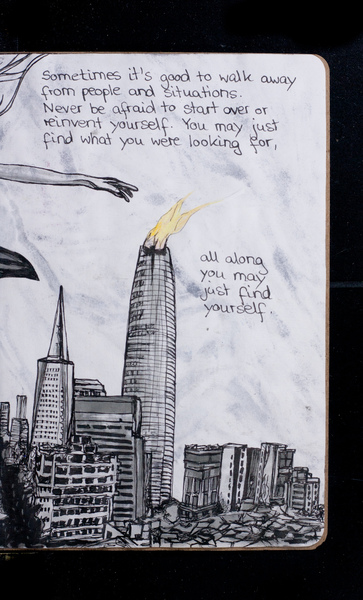 Sometimes it's good to walk away
from people and situations.
Never be afraid to start over or
reinvent yourself. You may just
find what you were looking for,
all along
you may
just find
yourself.